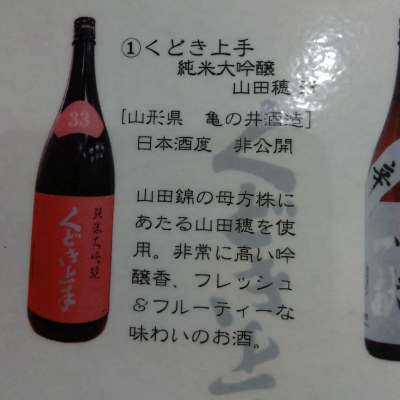 ①くどき上手
純米大吟醸
山田穂
[山形県 亀の井酒造]
日本酒度 非公開
山田錦の母方株に
あたる山田穂を使
用。非常に高い吟
醸香、フレッシュ
&フルーティーな
味わいのお酒。
33
純米大吟醸
くどき上手
くどき上手
辛